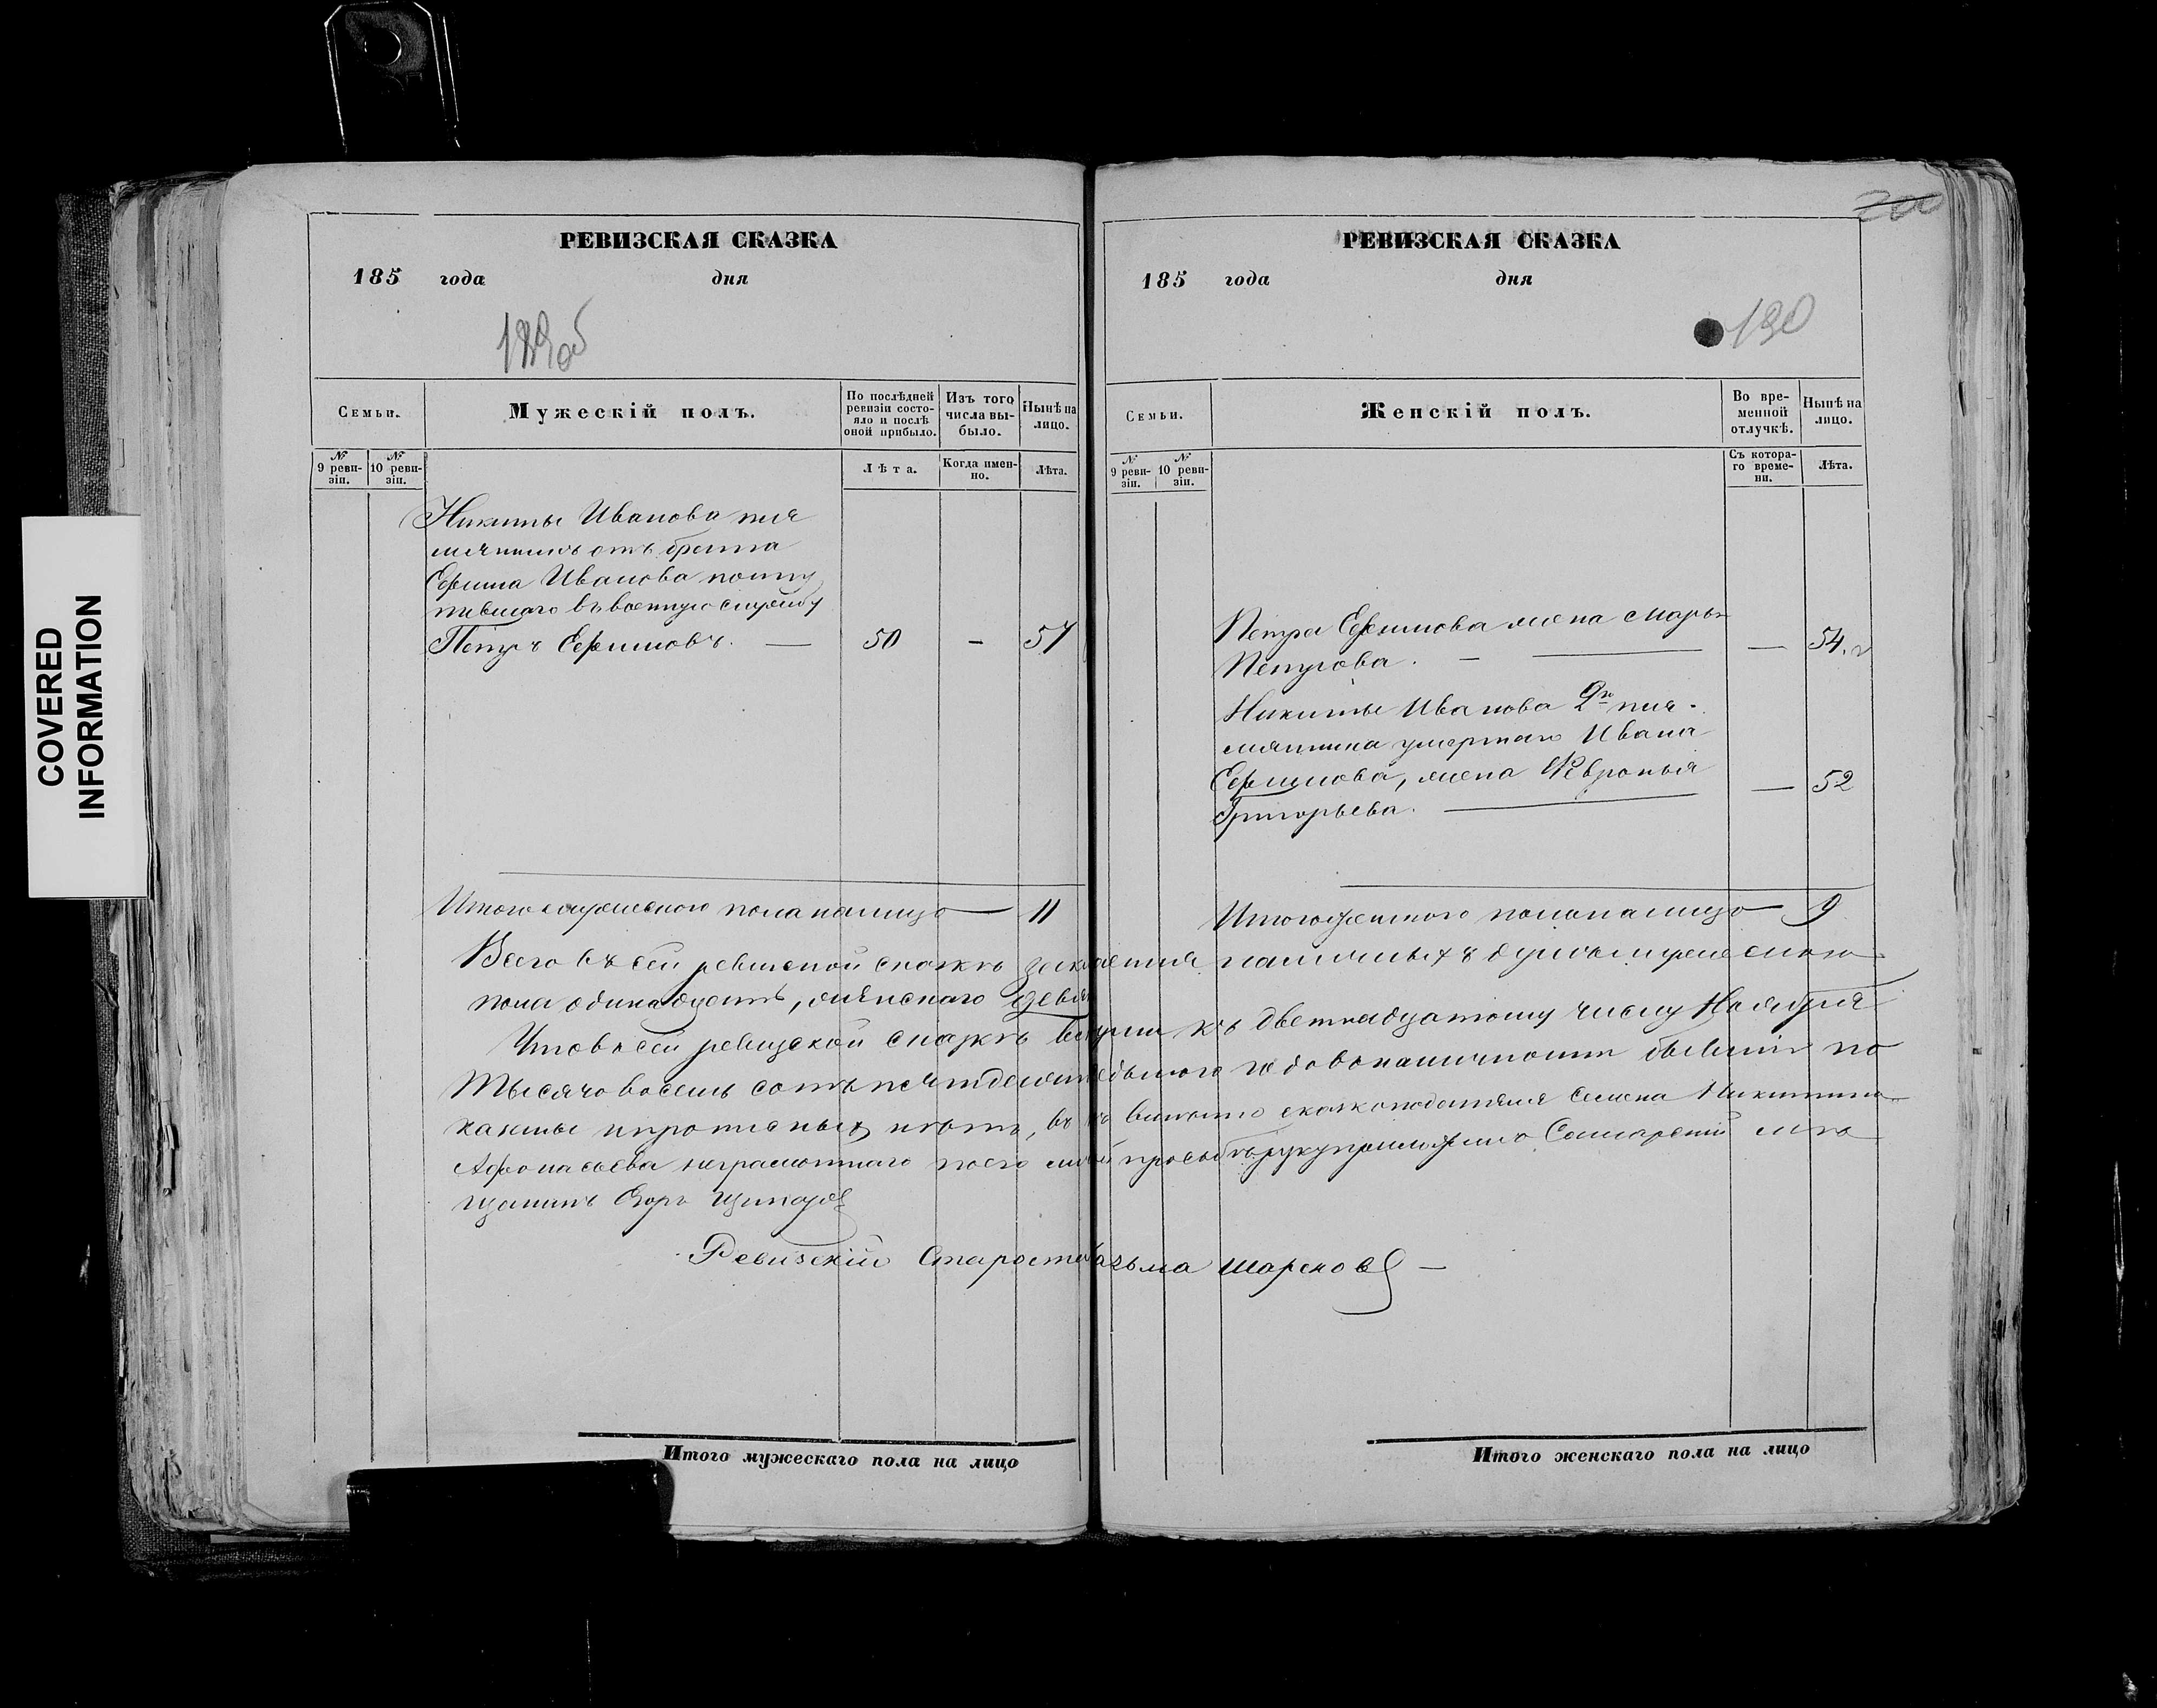 COVERED
INFORMATION
РЕВИЗСКАЯ СКАЗКА
185 года дня
189об
Семьи.
Мужескій полъ.
По послѣдней
ревизіи состо-
яло и послѣ
оной прибыло.
Изъ того
числа вы-
было.
Нынѣ на
лицо.
№
9 реви-
зіи.
№
10 реви-
зіи.
Лѣта.
Когда имен-
но.
Лѣта.
Никиты Иванова пле
мянникъ отъ брата
Ефима Иванова посту
пившаго въ военную службу
Петръ Ефимовъ. — 50 - 57
Итого мужескаго пола налицо — 11
Итого мужескаго пола на лицо
200
РЕВИЗСКАЯ СКАЗКА
185 года дня
190
Семьи.
Женскій полъ.
Во вре-
менной
отлучкѣ.
Нынѣ на
лицо.
№
9 реви-
зіи.
№
10 реви-
зіи.
Съ котора-
го време-
ни.
Лѣта.
Петра Ефимова жена Марья
Петрова. — — 54.
Никиты Иванова 2го пле-
мянника умершаго Ивана
Ефимова, жена Февронья
Григорьева. — — 52
Итого женскаго пола налицо — 9
Всего въ сей ревиской сказкѣ наличныхъ душъ мужескаго
пола одинадцать, женскаго девять
Что въ сей ревизской сказкѣ къ двенадцатому числу Ноября
Тысячо восемь сотъ пятдесятъ седьмого годо воналичности бывшiя по
казаны и прописныхъ нѣтъ, въ сказкоподателя Семена Никитина
Афонасьева неграмотнаго по его личной просьбѣ руку приложилъ Самарскій мѣ
щанинъ Егоръ
Ревизскій Староста Козьма Шарков
Итого женскаго пола на лицо